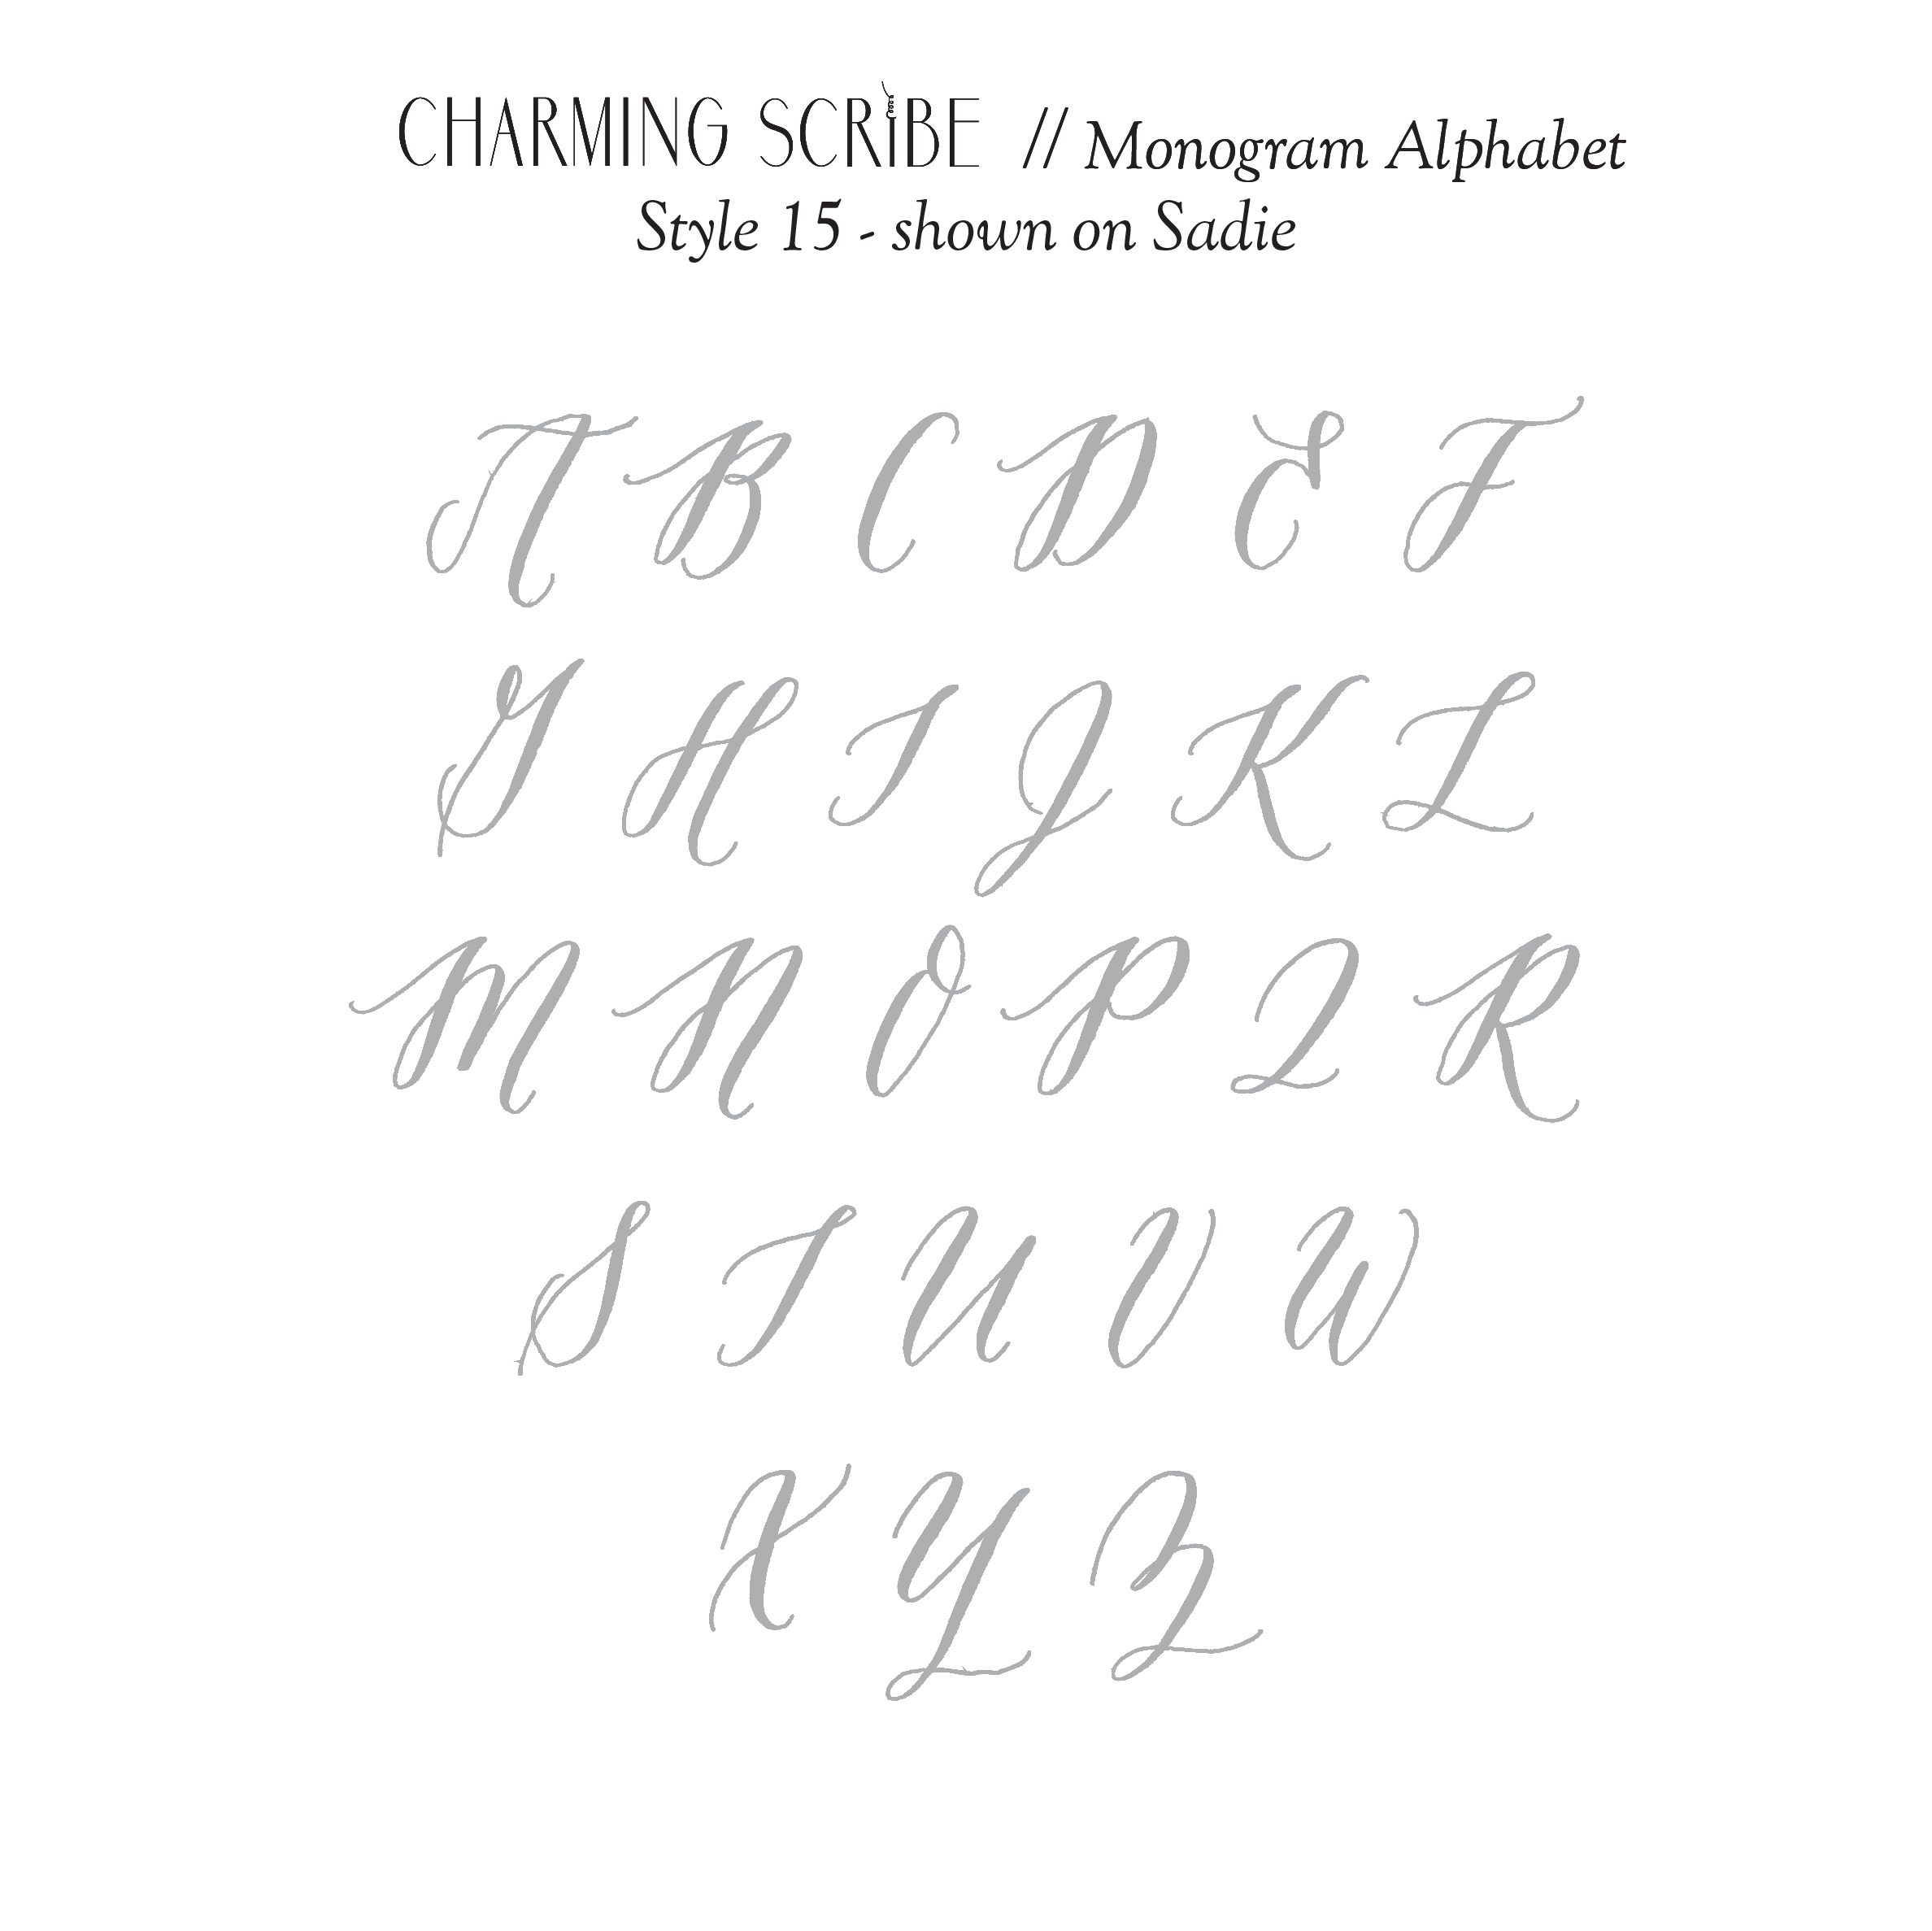 CHARMING SCRIBE // Monogram Alphabet
Style 15 - shown on Sadie
A B C D E F
G H I J K L
M N O P Q R
S T U V W
X Y Z